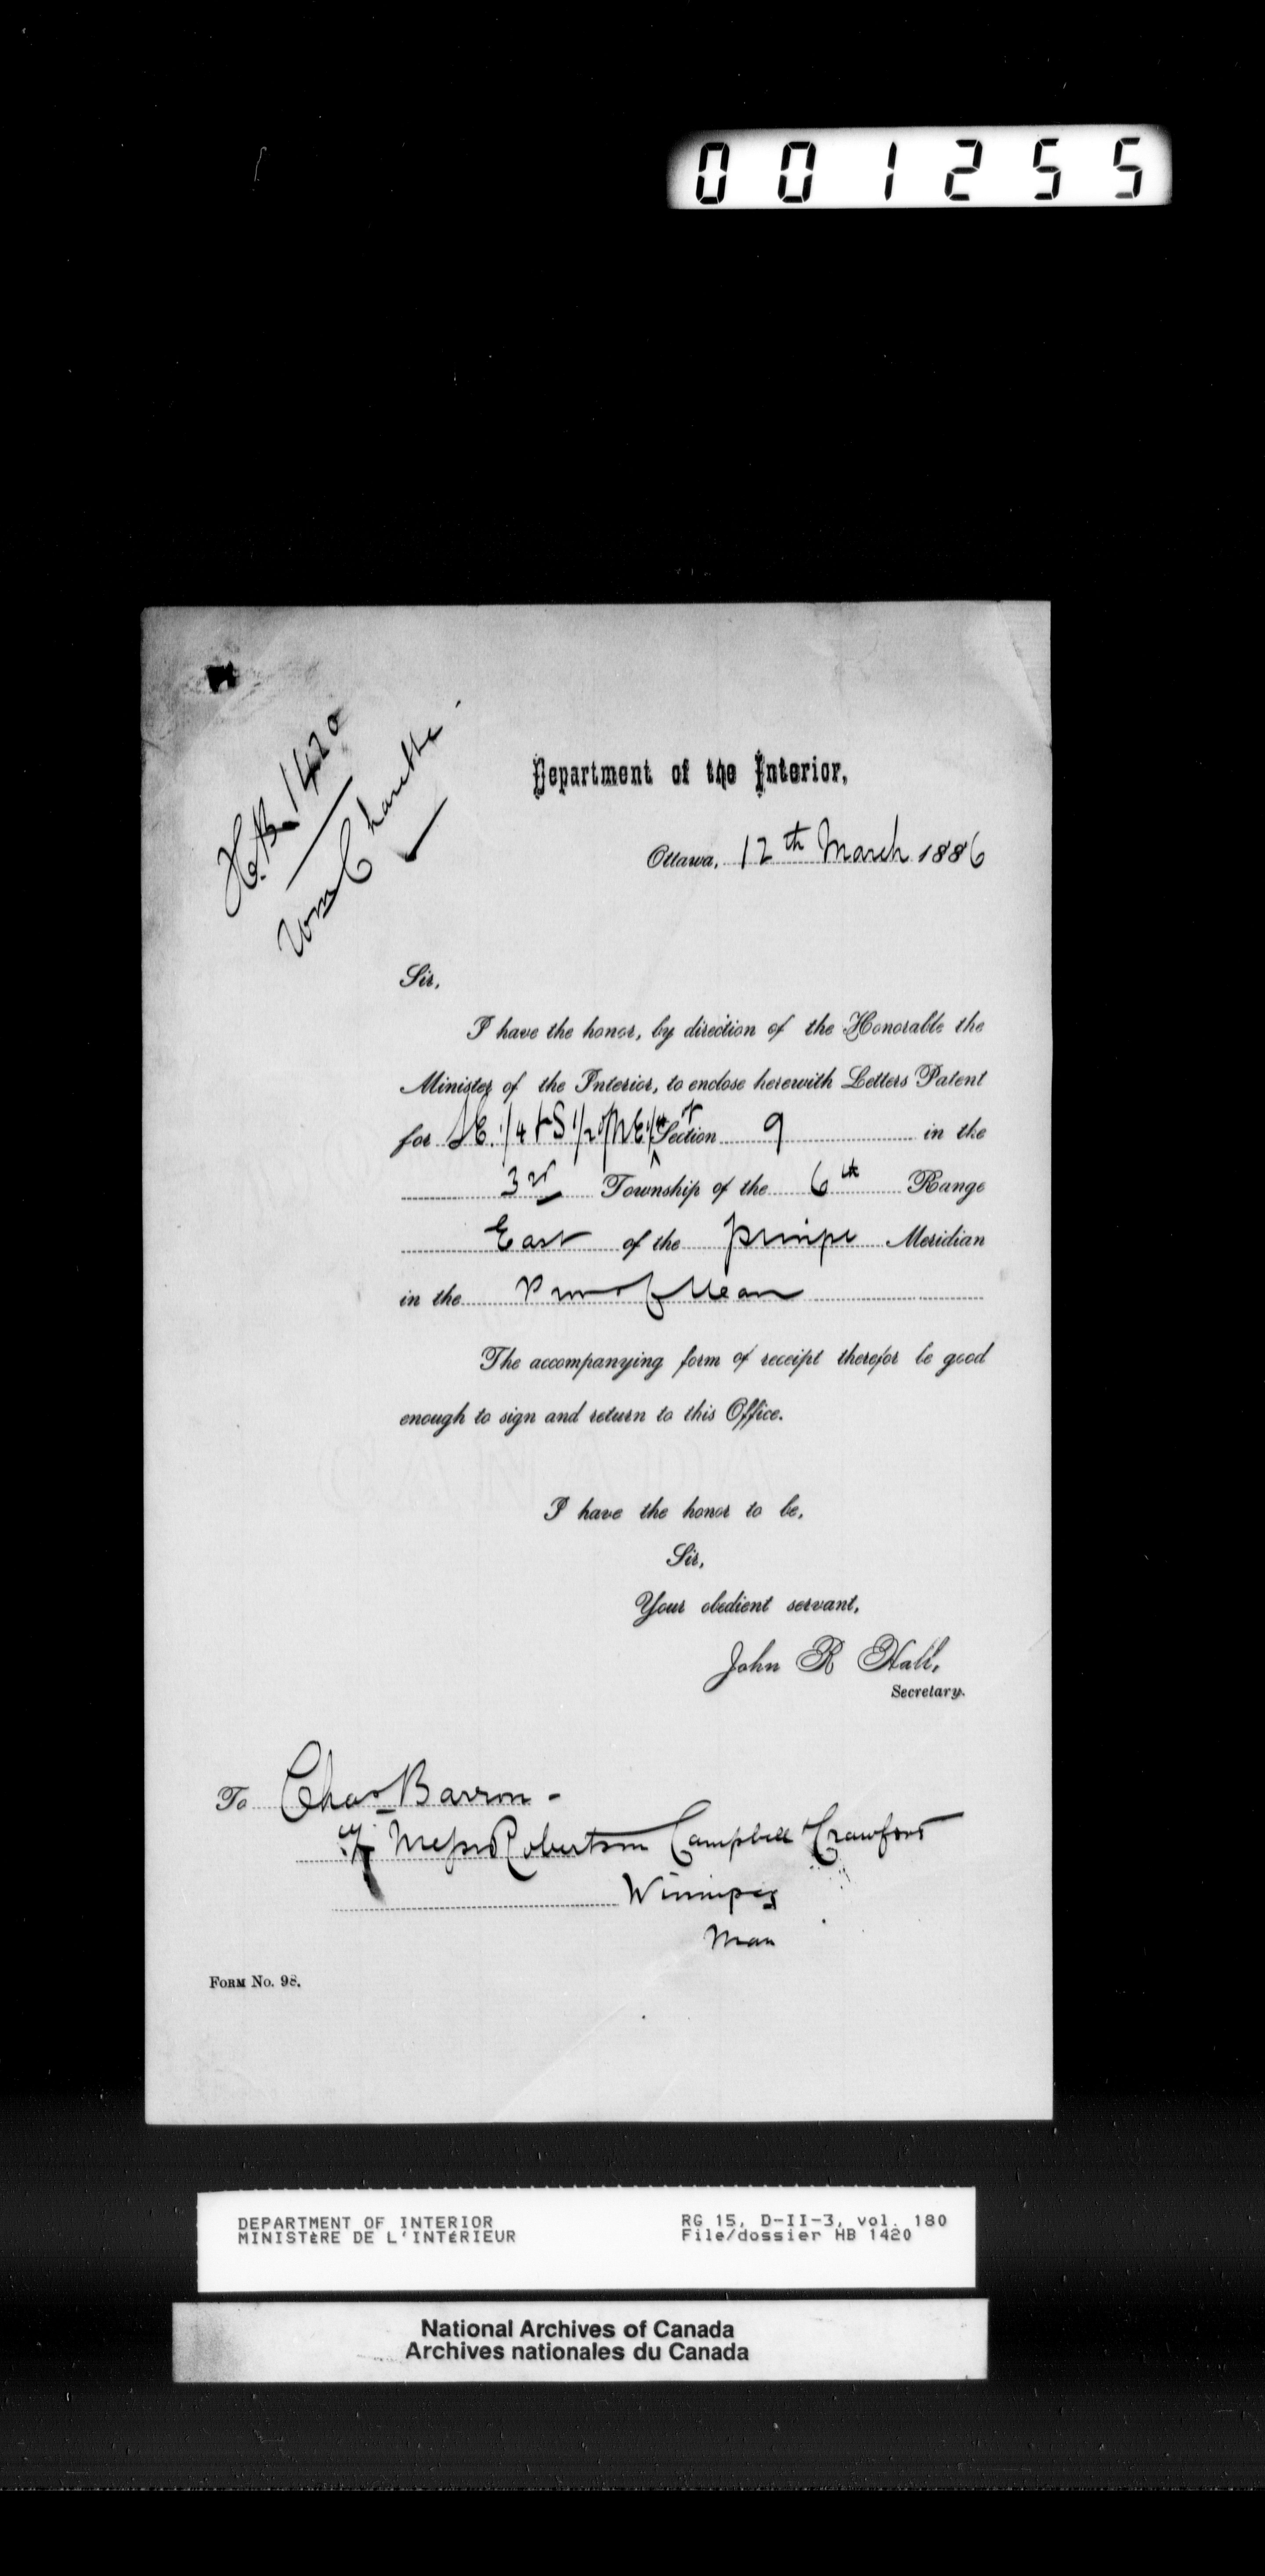 001255
H.B. 1420
Wm Charette
Department of the Interior,
Ottawa, 12th March 1886
Sir,
I have the honor, by direction of the Honorable the
Minister of the Interior, to enclose herewith Letters Patent
for S.E. 1/4 & S 1/2 of N.E. 1/4 of Section 9 in the
3rd Township of the 6th Range
East of the Meridian
in the Prov of Man
The accompanying form of receipt therefor be good
enough to sign and return to this Office.
I have the honor to be,
Sir,
Your obedient servant,
John R Hall,
Secretary.
To Chas Barron -
Messrs Robertson Campbell Crawford
Winnipeg
Man
FORM No. 98.
DEPARTMENT OF INTERIOR
MINISTÈRE DE L'INTÉRIEUR
RG 15, D-II-3, vol. 180
File/dossier HB 1420
National Archives of Canada
Archives nationales du Canada